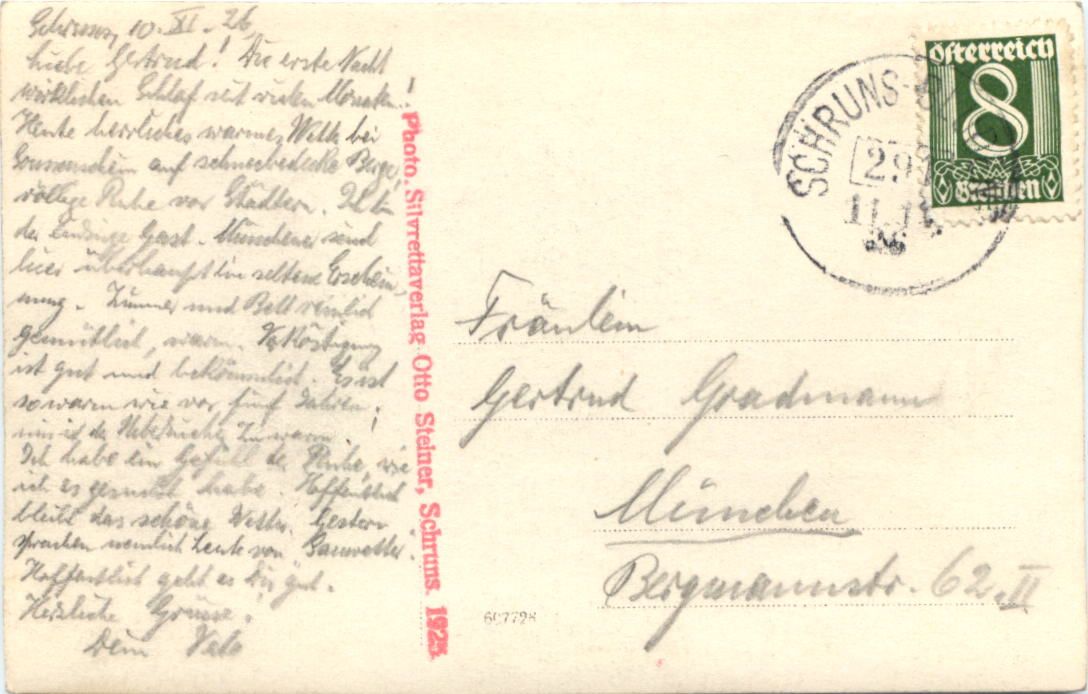 Schruns, 10. XI. 26
Liebe Gertrud! Die erste Nacht
wirklichen Schlaf seit vielen Monaten!
Heute herrliches warmes Wetter bei
Sonnenschein auf schneebedeckte Berge
völlige Ruhe vor Städtern. Ich bin
der einzige Gast. Münchner sind
hier überhaupt eine seltene Erschein-
ung. Zimmer und Bett reinlich
gemütlich, warm. Verköstigung
ist gut und bekömmlich. Es ist
so warm wie vor fünf Jahren;
mir ist der Überzieher zu warm!
Ich habe ein Gefühl der Ruhe, wie
ich es gesucht habe. Hoffentlich
bleibt das schöne Wetter. Gestern
sprachen nemlich Leute von
Hoffentlich geht es Dir gut.
Herzliche Grüsse.
Dein Vater
Photo. Silvrettaverlag Otto Steiner, Schruns. 1925
Österreich
8
Groschen
SCHRUNS
11.11.
26
Fräulein
Gertrud Gradmann
München
Bergmannstr. 62.II